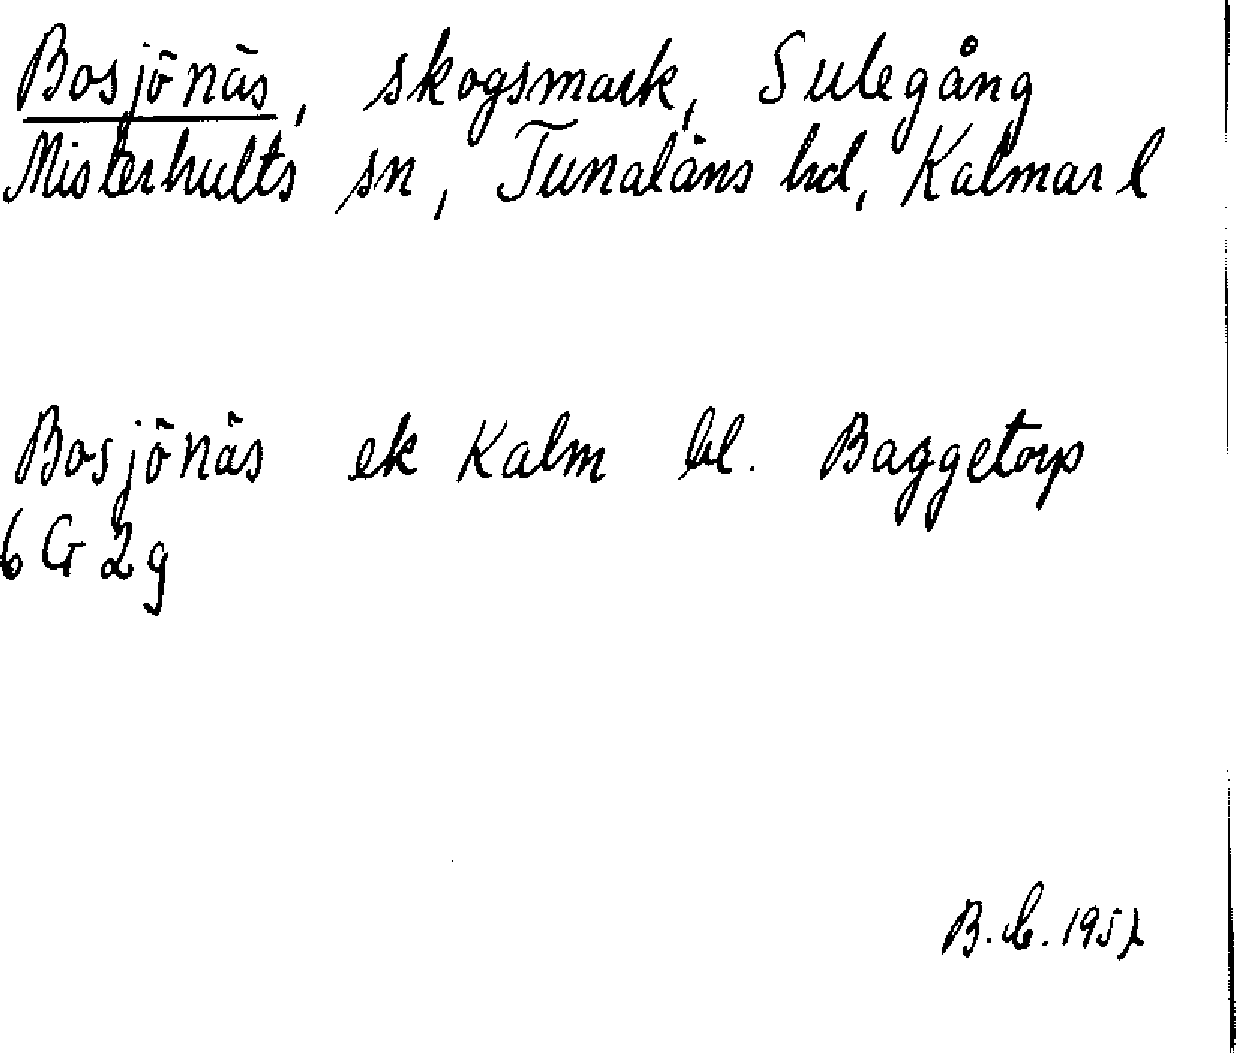 Bosjönäs, skogsmark, Sulegång
Misterhults sn, Tunaläns hd, Kalmar l
Bosjönäs ek Kalm bl. Baggetorp
6 G 2g
B. C. 1957